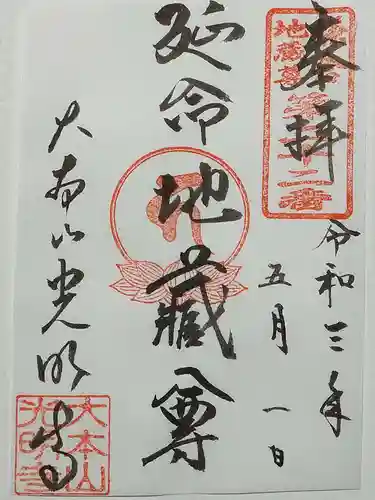 奉拝
令和三年
五月一日
延命地蔵尊
大本山光明寺
大本山
光明寺